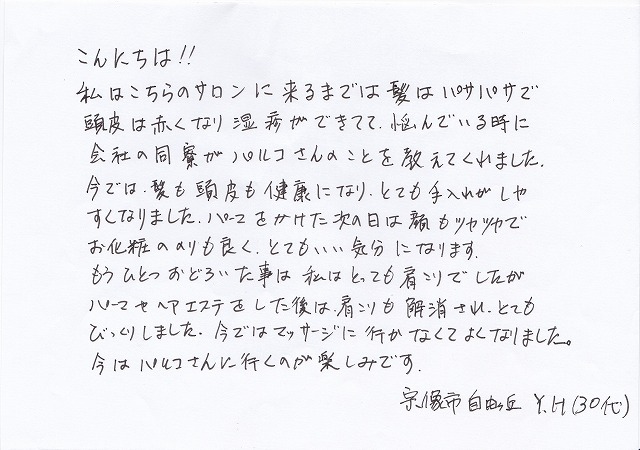 こんにちは!!
私はこちらのサロンに来るまでは髪はパサパサで
頭皮は赤くなり湿疹ができてて、悩んでいる時に
会社の同寮がパルコさんのことを教えてくれました。
今では、髪も頭皮も健康になり、とても手入れがしや
すくなりました。パーマをかけた次の日は顔もツヤツヤで
お化粧ののりも良く、とてもいい気分になります。
もうひとつおどろいた事は私はとっても肩こりでしたが
パーマやヘアエステをした後は、肩こりも解消され、とても
びっくりしました。今ではマッサージに行かなくてよくなりました。
今はパルコさんに行くのが楽しみです。
宗像市自由ヶ丘 Y.H(30代)